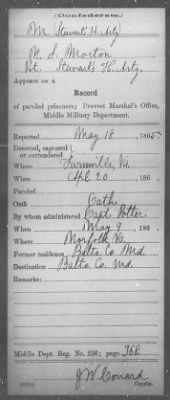 (Confederate.)
M Stewart's H. Arty
M. S. Morton
Pvt. Stewart's H. Arty.
Appears on a
Record
of paroled prisoners; Provost Marshal's Office,
Middle Military Department.
Reported May 18, 1865.
Deserted, captured
or surrendered
Where Farmville, Va.
When Apl. 20, 186
Paroled
Oath Oath
By whom administered Capt. Potter.
When May 9, 186
Where Norfolk Va.
Former residence Balto. Co. Md.
Destination Balto. Co. Md.
Remarks:
Middle Dept. Reg. No. 236; page 368
J W Conard
Copyist.